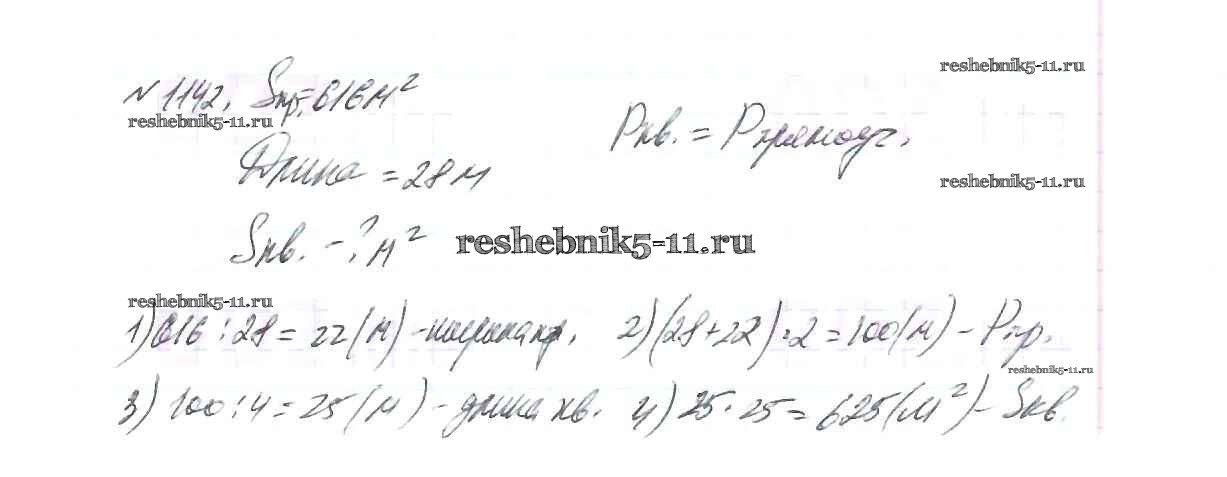 reshebnik5-11.ru
№1142. Sпр.=616м²
reshebnik5-11.ru
Pкв. = Pпрямоуг.
Длина = 28м
reshebnik5-11.ru
Sкв. - ? м²
reshebnik5-11.ru
reshebnik5-11.ru
1) 616 : 28 = 22 (м) - ширина пр. 2) (28+22)·2 = 100 (м) - Pпр.
reshebnik5-11.ru
3) 100 : 4 = 25 (м) - длина кв. 4) 25 · 25 = 625 (м²) - Sкв.